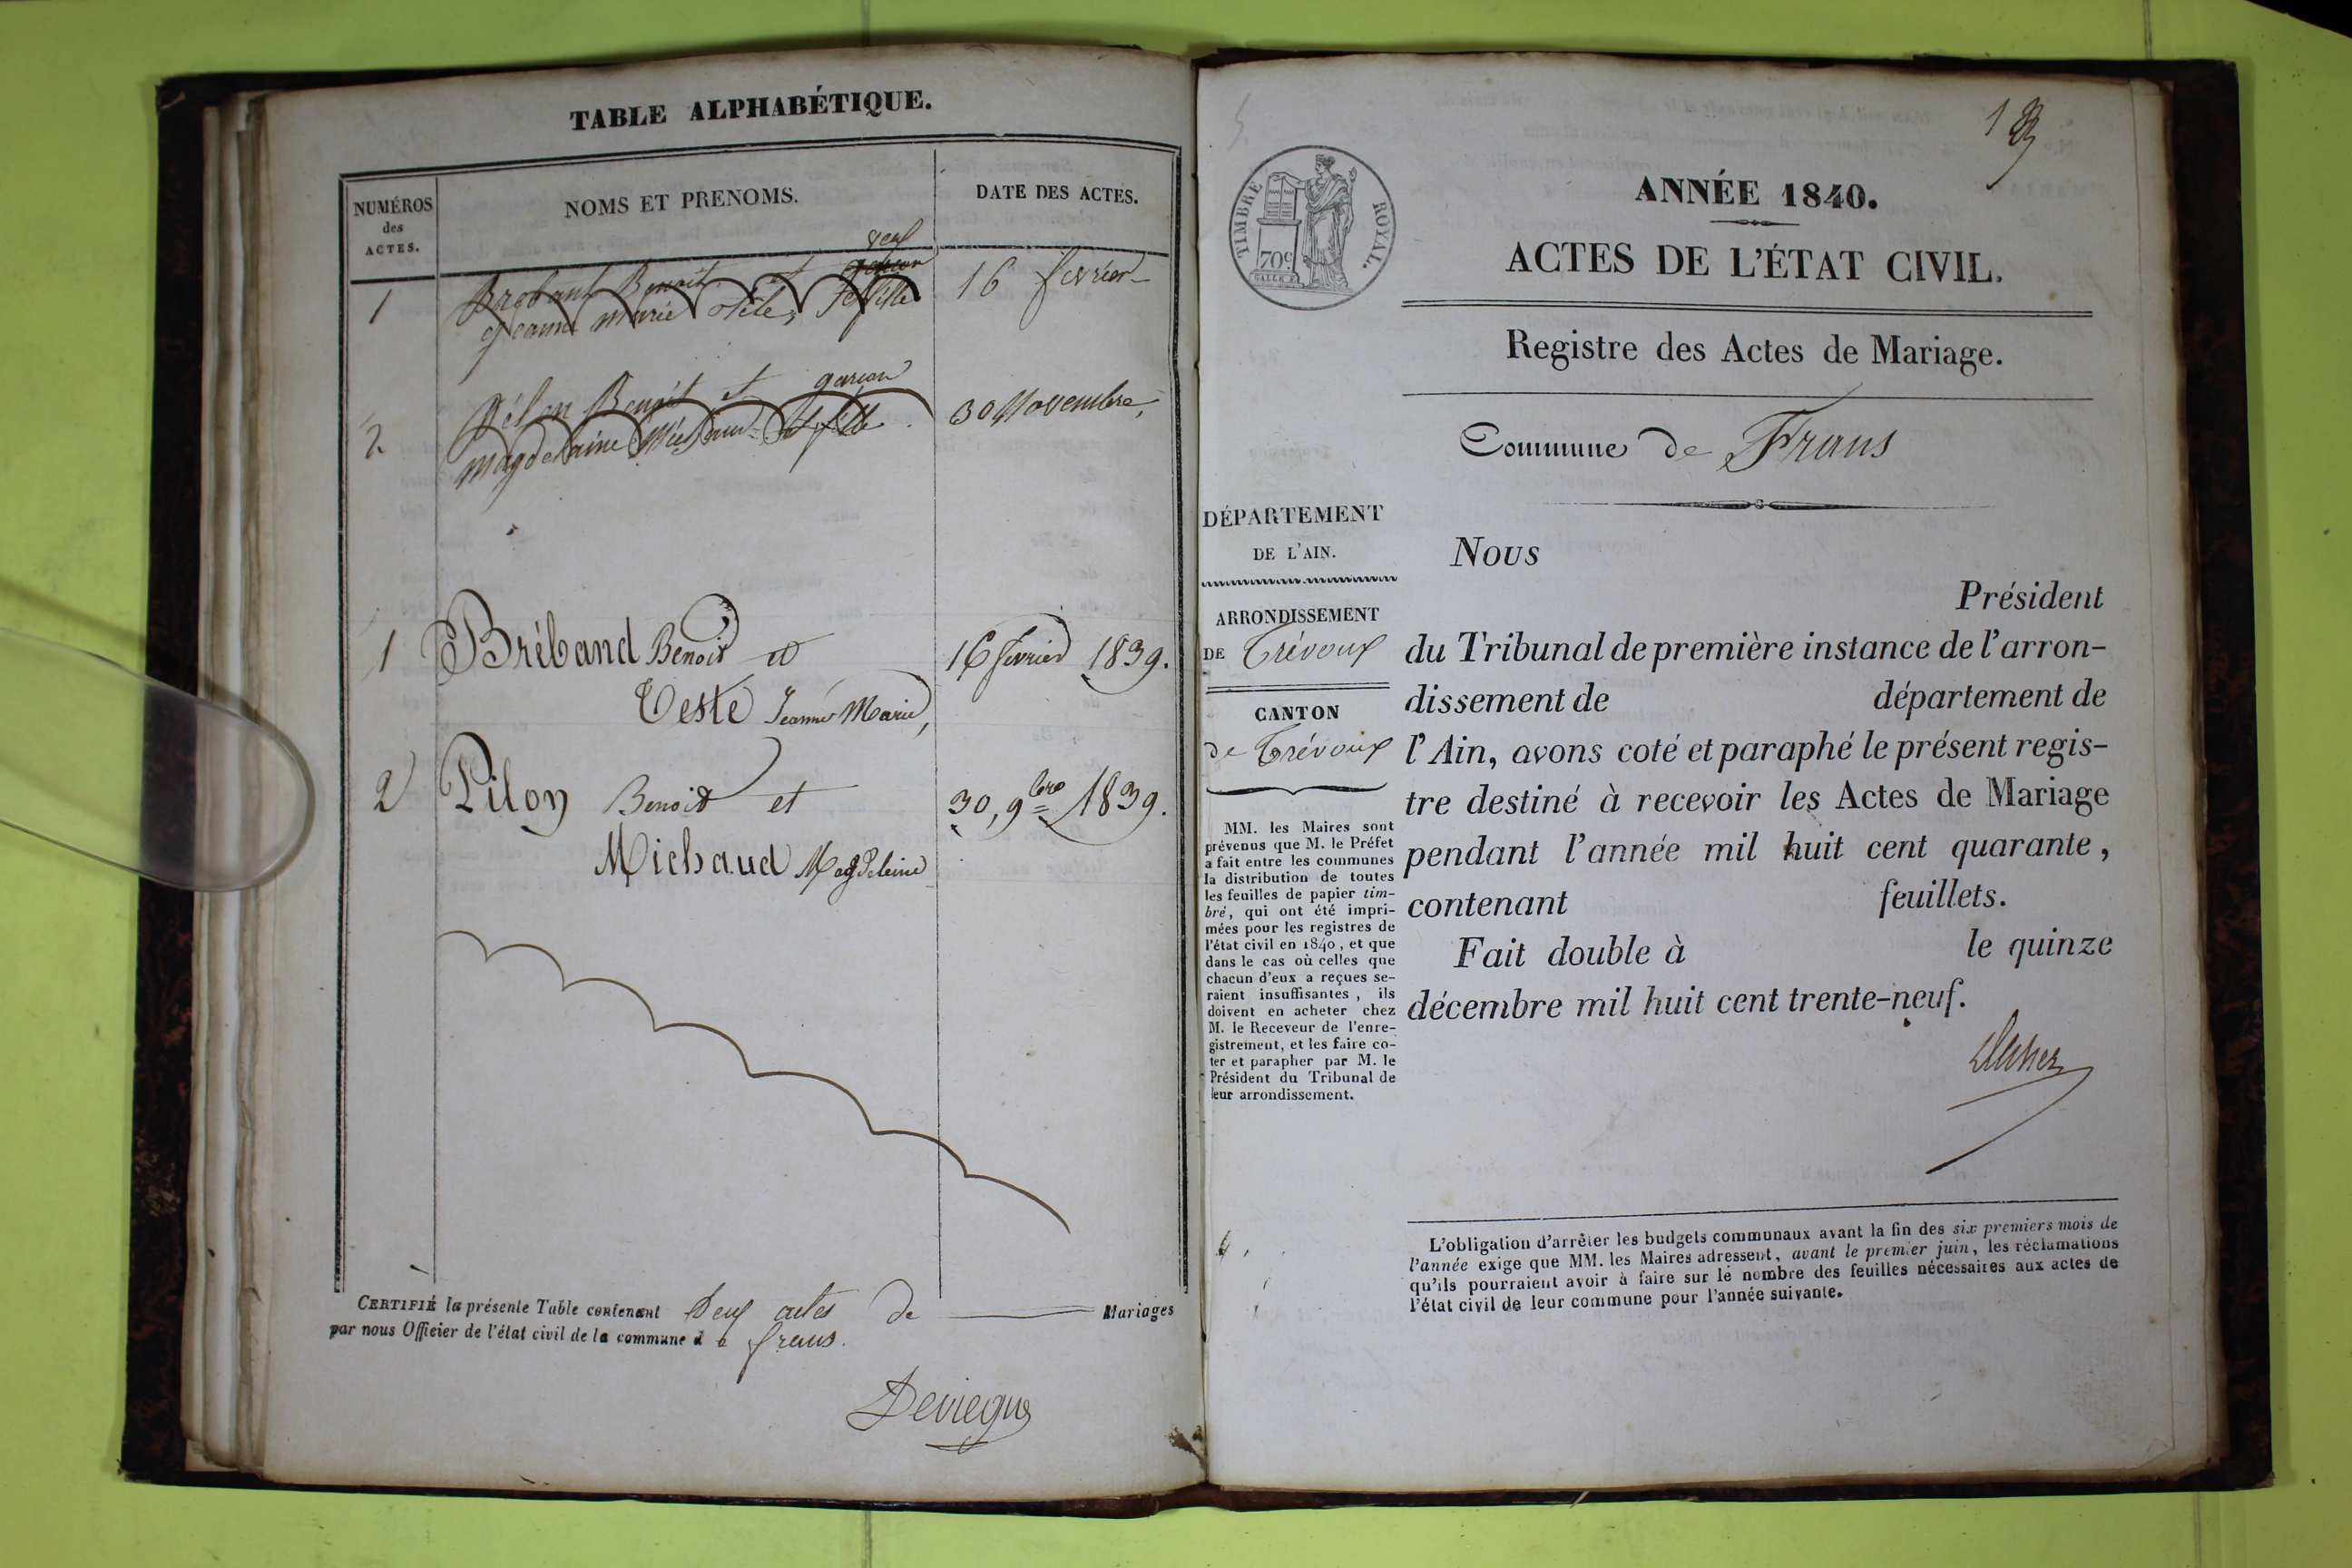 TABLE ALPHABÉTIQUE.
NUMÉROS
des
ACTES.
NOMS ET PRENOMS.
DATE DES ACTES.
1
Benoit et
Jeanne Marie fille
16 février
2
Benoit et garçon
Magdelaine fille
30 Novembre,
1 Bréband Benoit et 16 février 1839.
Teste Jeanne Marie,
2 Pilon Benoit et 30, 9bre 1839.
Michaud Magdeleine
CERTIFIÉ la présente Table contenant Deux actes de Mariages
par nous Officier de l'état civil de la commune de frans.
TIMBRE ROYAL.
70c
ANNÉE 1840.
ACTES DE L'ÉTAT CIVIL.
Registre des Actes de Mariage.
Commune de Frans
DÉPARTEMENT
DE L'AIN.
ARRONDISSEMENT
DE Trévoux
CANTON
de Trévoux
MM. les Maires sont
prévenus que M. le Préfet
a fait entre les communes
la distribution de toutes
les feuilles de papier tim-
bré, qui ont été impri-
mées pour les registres de
l'état civil en 1840, et que
dans le cas où celles que
chacun d'eux a reçues se-
raient insuffisantes, ils
doivent en acheter chez
M. le Receveur de l'enre-
gistrement, et les faire co-
ter et parapher par M. le
Président du Tribunal de
leur arrondissement.
Nous
Président
du Tribunal de première instance de l'arron-
dissement de département de
l'Ain, avons coté et paraphé le présent regis-
tre destiné à recevoir les Actes de Mariage
pendant l'année mil huit cent quarante,
contenant feuillets.
Fait double à le quinze
décembre mil huit cent trente-neuf.
L'obligation d'arrêter les budgets communaux avant la fin des six premiers mois de
l'année exige que MM. les Maires adressent, avant le premier juin, les réclamations
qu'ils pourraient avoir à faire sur le nombre des feuilles nécessaires aux actes de
l'état civil de leur commune pour l'année suivante.